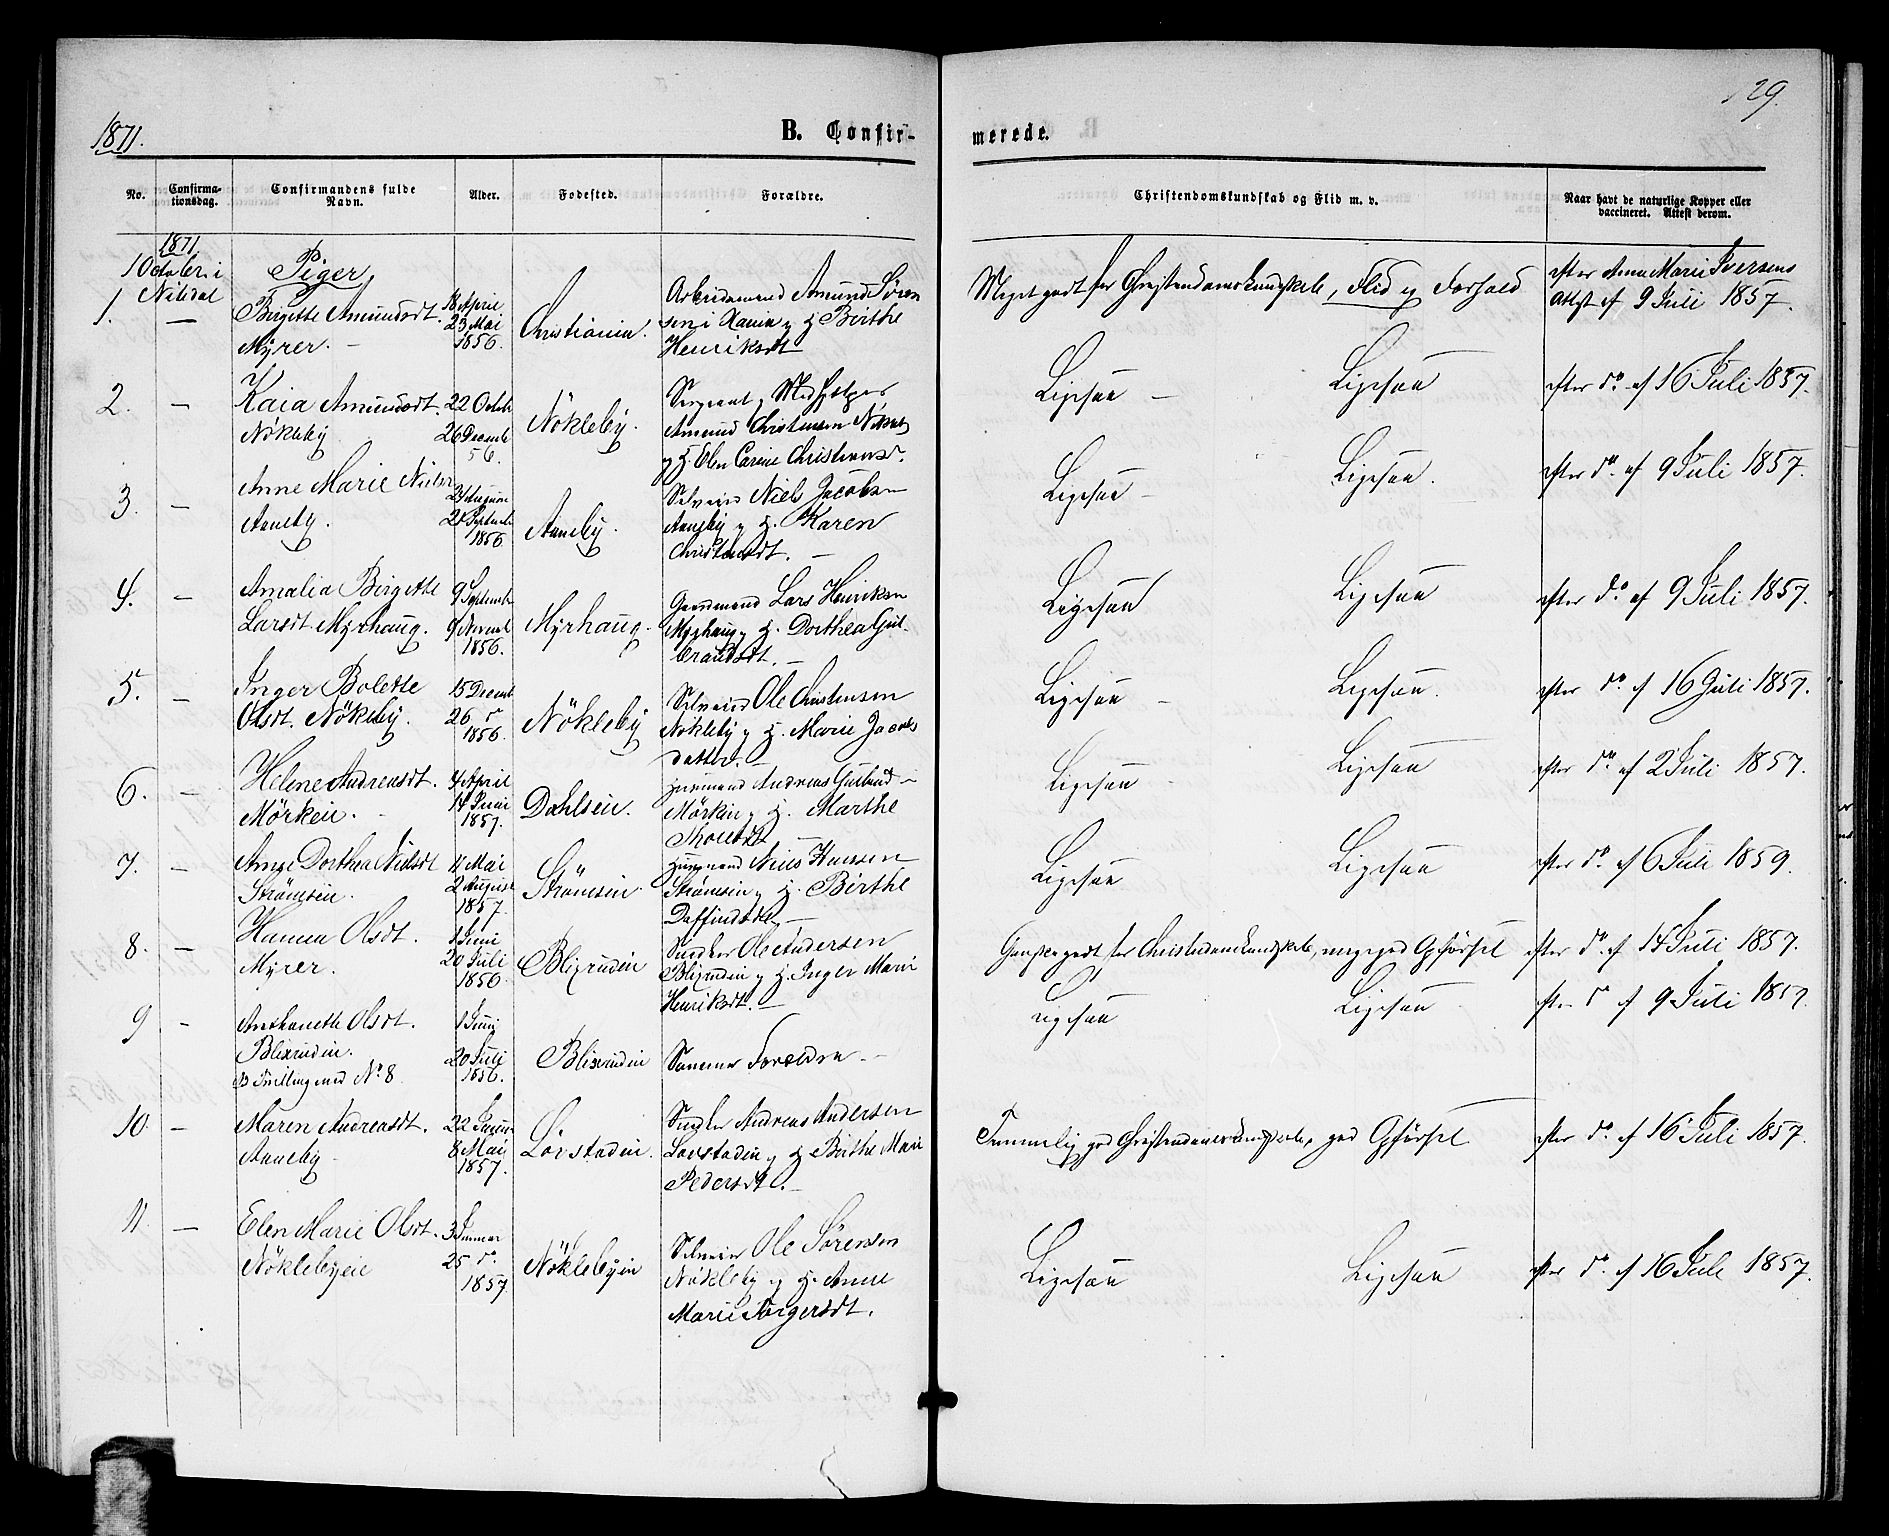 1871.
B. Confir-
merede.
129.
No.
Confirma-
tionsdag.
Confirmandens fulde
Navn.
Alder.
Fødested.
Forældre.
Christendomskundskab og Flid m. v.
Naar havt de naturlige Kopper eller
vaccineret. Attest derom.
1871.
1 October i
Nitedal
Piger.
1. —
Birgitte Amundsdt.
Myrer. —
18 April
23 Mai
1856.
Christiania.
Arbeidsmand Amund Søren
sen i Xania og H. Birthe
Henriksdt
Meget godt for Christendomskundskab, Flid og Forhold
efter Anne Marie Iversens
Attest af 9 Juli 1857.
2. —
Kaia Amundsdt.
Nökleby
22 Octob
26 Decemb
56.
Nökleby.
Sergeant og Medhjelper
Amund Christensen Nökleby
og H. Elen Carine Christiansd.
Ligesaa — Ligesaa
efter do. af 16 Juli 1857.
3. —
Anne Marie Nielsd
Aaneby.
21 August
21 Septemb
1856
Aaneby.
Selveier Niels Jacobsen
Aaneby og H. Karen
Christensdt. —
Ligesaa — Ligesaa.
efter do. af 9 Juli 1857.
4. —
Amalia Birgitte
Larsdt Myrhaug.
9 Septemb
9 Novemb
1856.
Myrhaug.
Gaardmand Lars Henriksen
Myrhaug og H. Dorthea Gul-
brandsdt. —
Ligesaa Ligesaa
efter do. af 9 Juli 1857.
5. —
Inger Bolette
Olsdt. Nökleby.
15 Decemb
26 do
1856.
Nökleby
Selveier Ole Christensen
Nökleby og H. Marie Jacobs
datter. —
Ligesaa — Ligesaa.
efter do. af 16 Juli 1857.
6. —
Helene Andreasdt.
Mörkein. -
4 April
14 Juni
1857.
Dahlsein.
Huusmand Andreas
Mörkein og H. Marthe
Ligesaa Ligesaa
efter do. af 2 Juli 1857.
7. —
Anne Dorthea Nielsdt
Strömsein.
11 Mai
2 August
1857.
Strömsein.
Huusmand Niels Hansen
Strömsein og H. Birthe
Daffinsdtr. —
Ligesaa Ligesaa
efter do. af 6 Juli 1859.
8. —
Hanna Olsdt.
Myrer.
1 Juni
20 Juli
1856.
Blixrudin
Ole Andersen
Blixrudin og H. Inger Marie
Henriksdt. —
Ganske godt for Christendomskundskab, meget god Opførsel
efter do. af 14 Juli 1857.
9 -
Anthonette Olsdt.
Blixrudin.
B Tvilling med No 8.
1 Juni
20 Juli
1856.
Blixrudin
Samme Forældre. —
Ligesaa Ligesaa
efter do af 9 Juli 1857.
10. —
Maren Andreasdt.
Aaneby
22 Januar
8 Maij
1857.
Lörstadin.
Andreas Andersen
Lörstadin og H Birthe Marie
Pedersdt. —
Temmelig god Christendomskundskab, god Opførsel
efter do. af 16 Juli 1857.
11. —
Elen Marie Olsdt.
Nöklebyeie
3 Januar
25 do.
1857.
Nöklebyein
Selveier Ole Sørensen
Nökleby og H. Anne
Marie Torgersdt.
Ligesaa Ligesaa
efter do. af 16 Juli 1857.